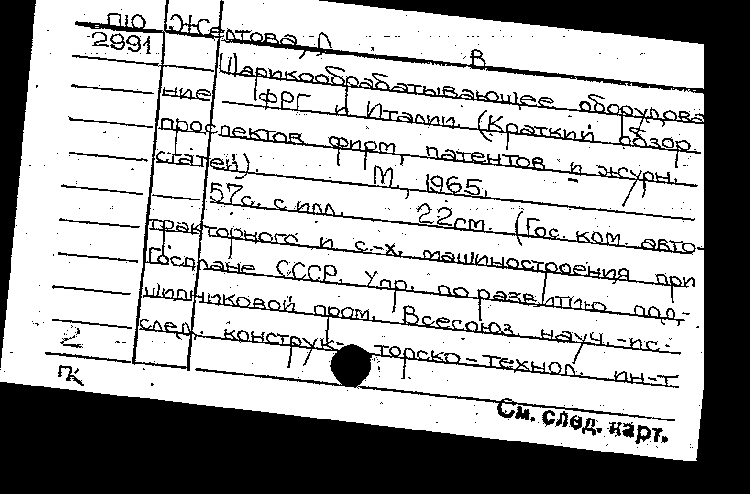 ПЮ Желтова, Л. В.
2991 Шарикообрабатывающее оборудова
ние ФРГ и Италии. (Краткий обзор
проспектов фирм, патентов и журн.
статей). М., 1965.
57с. с илл. 22см. (Гос. ком. авто-
тракторного и с.-х. машиностроения при
Госплане СССР. Упр. по развитию под-
шипниковой пром. Всесоюз. науч.-ис-
след. конструк- торско-технол. ин-т
2
ПК
См. след. карт.